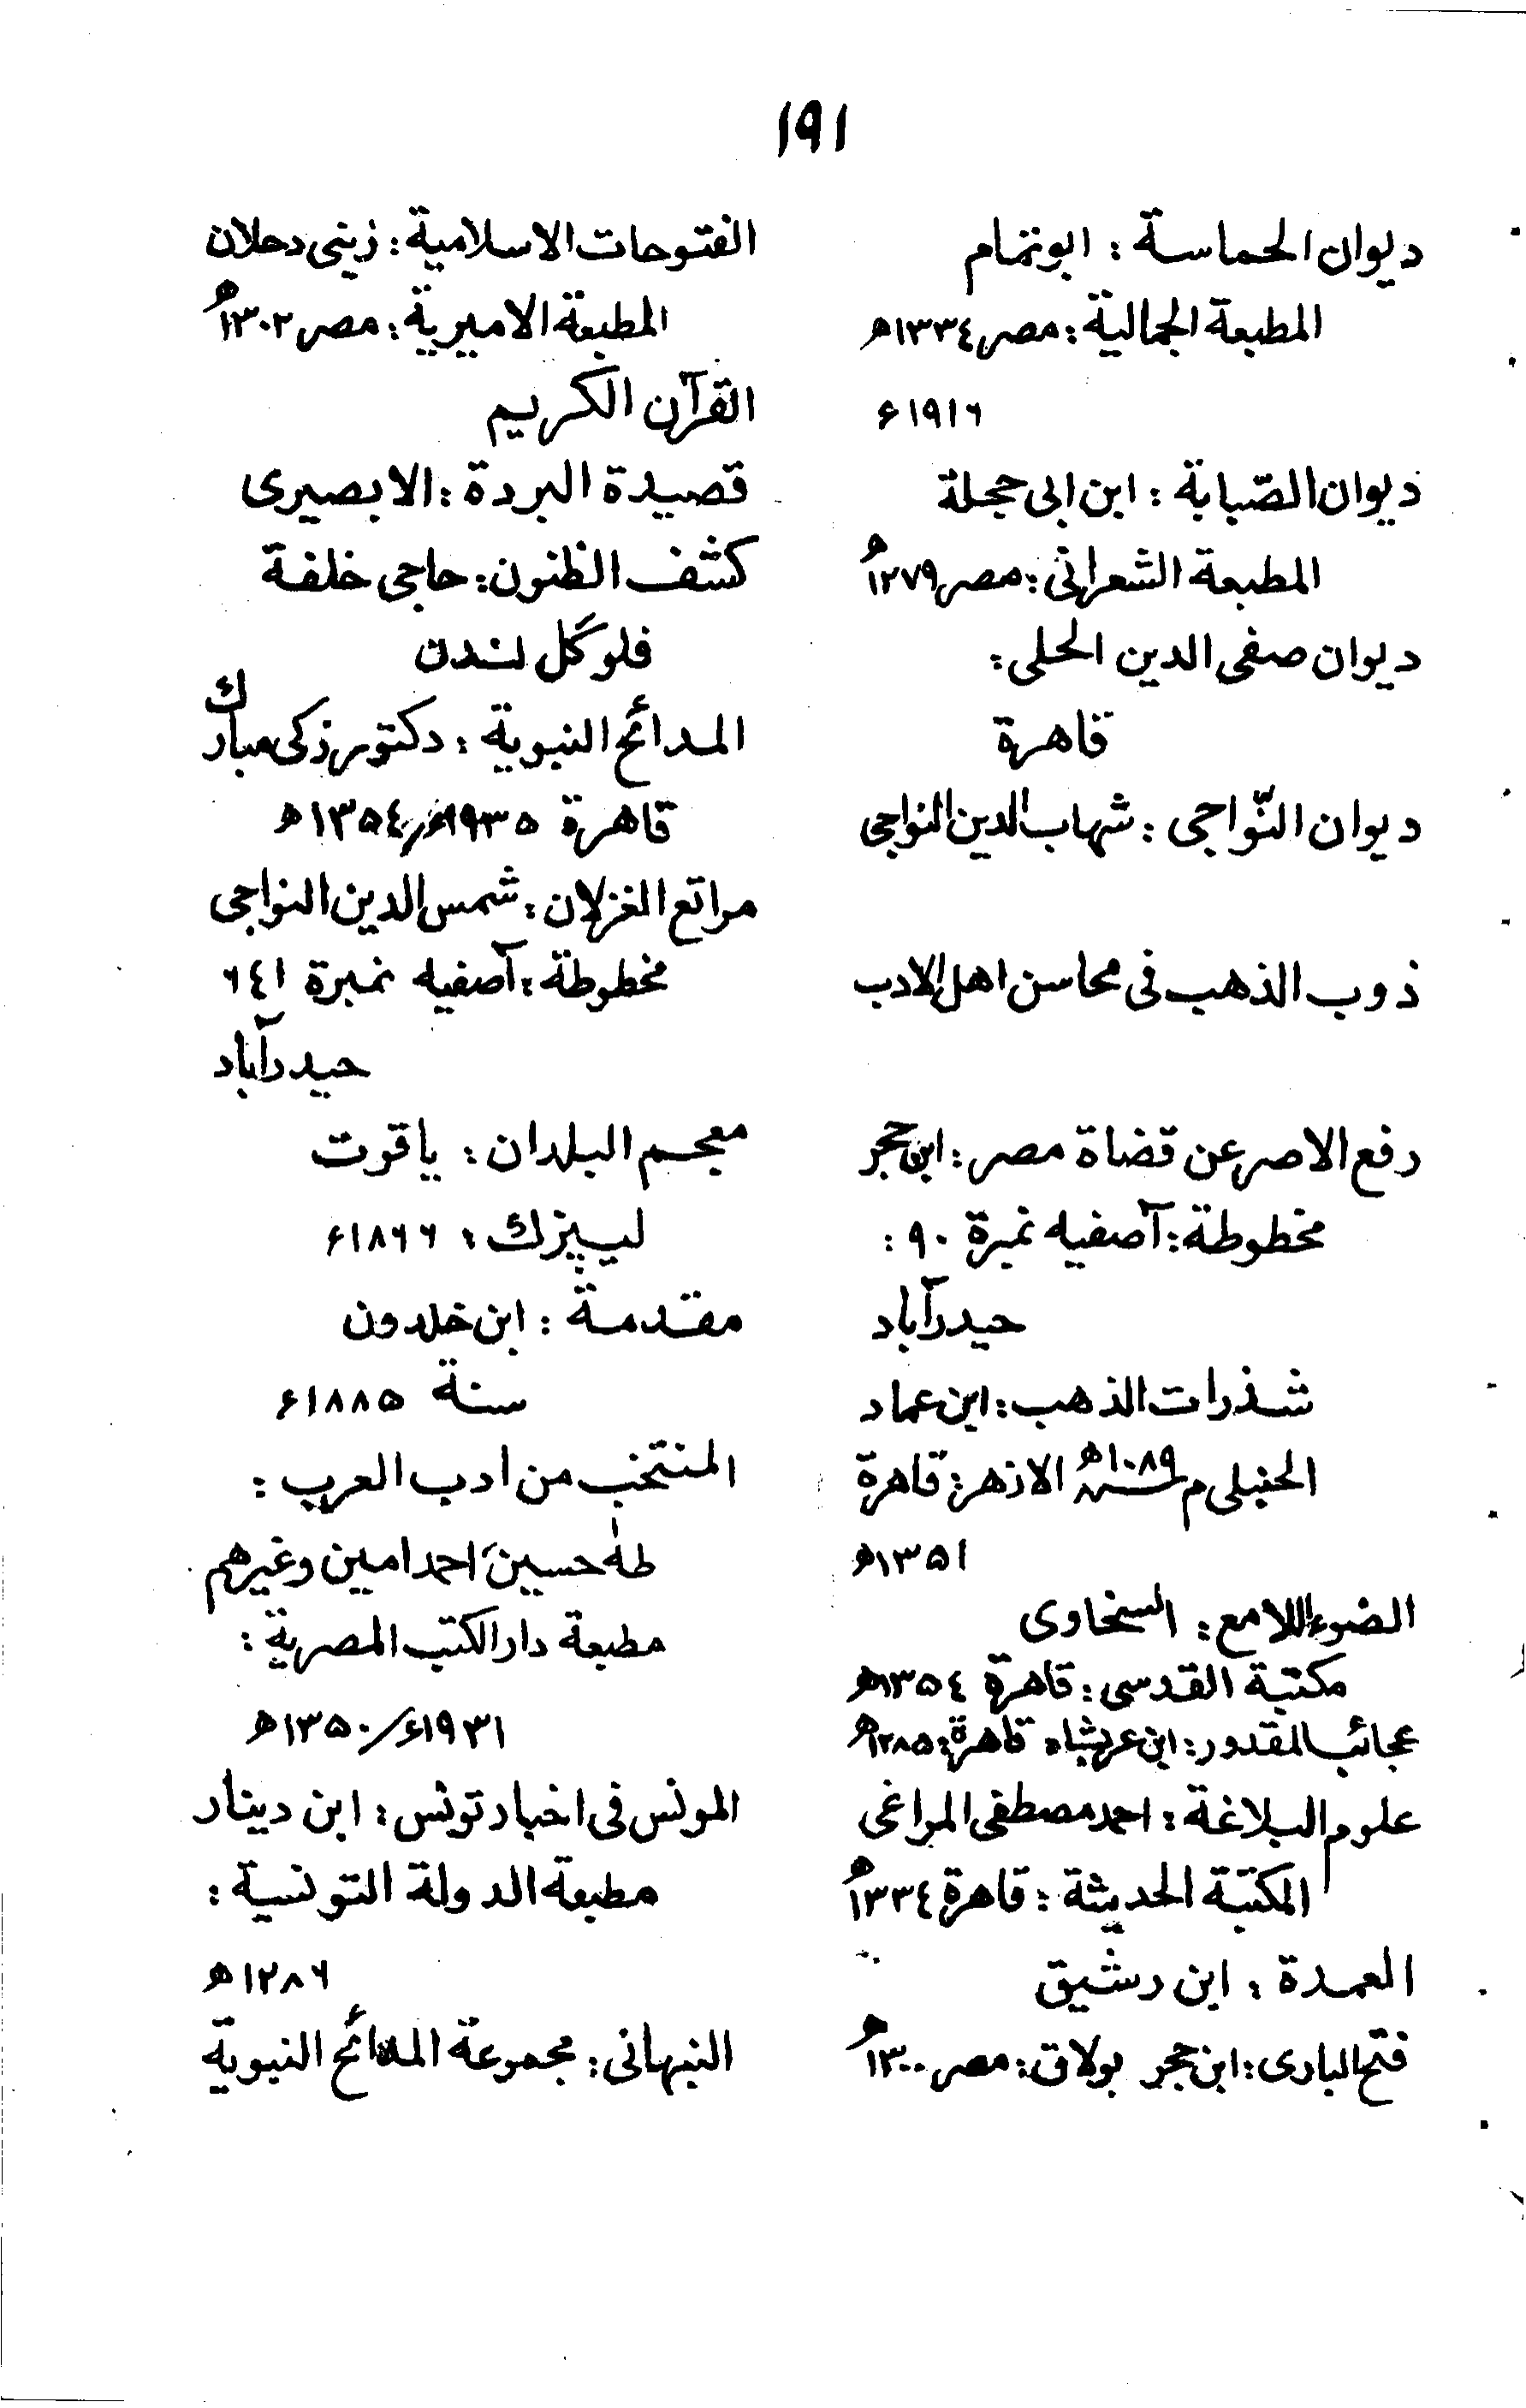 ١٩١
ديوان الحماسة : ابوتمام
المطبعة الجمالية : مصر ١٣٣٤ھ
١٩١٦ء
ديوان الصّبابة : ابن ابى حجلة
المطبعة الشعرانى : مصر ١٢٧٩ھ
ديوان صفى الدين الحلى :
قاهرة
ديوان النّواجى : شهاب الدين النواجى
ذوب الذهب فى محاسن اهل الادب
رفع الاصر عن قضاة مصر : ابن حجر
مخطوطة : آصفيه نمبرة ٩٠ :
حيدرآباد
شذرات الذهب : ابن عماد
الحنبلى م سنه ١٠٨٩ھ الازهر : قاهرة
١٣٥١ھ
الضوء اللامع : السخاوى
مكتبة القدسى : قاهرة ١٣٥٤ھ
عجائب المقدور : ابن عربشاه قاهرة : ١٢٨٥ھ
علوم البلاغة : احمد مصطفى المراغى
المكتبة الحديثة : قاهرة ١٣٣٤ھ
العمدة : ابن رشيق
فتح البارى : ابن حجر بولاق : مصر ١٣٠٠ھ
الفتوحات الاسلامية : زينى دحلان
المطبعة الاميرية : مصر ١٣٠٢ھ
القرآن الكريم
قصيدة البردة : الابصيرى
كشف الظنون : حاجى خلفة
فلوگل لندن
المدائح النبوية : دكتور زكى مبارك
قاهرة ١٩٣٥ء / ١٣٥٤ھ
مراتع الغزلان : شمس الدين النواجى
مخطوطة : آصفيه نمبرة ٦٤١
حيدرآباد
معجم البلدان : ياقوت
ليپزك : ١٨٦٦ء
مقدمة : ابن خلدون
سنة ١٨٨٥ء
المنتخب من ادب العرب :
طهٰ حسين، احمد امين وغيرهم
مطبعة دار الكتب المصرية :
١٩٣١ء / ١٣٥٠ھ
المونس فى اخبار تونس : ابن دينار
مطبعة الدولة التونسية :
١٢٨٦ھ
النبهانى : مجموعة المدائح النبوية